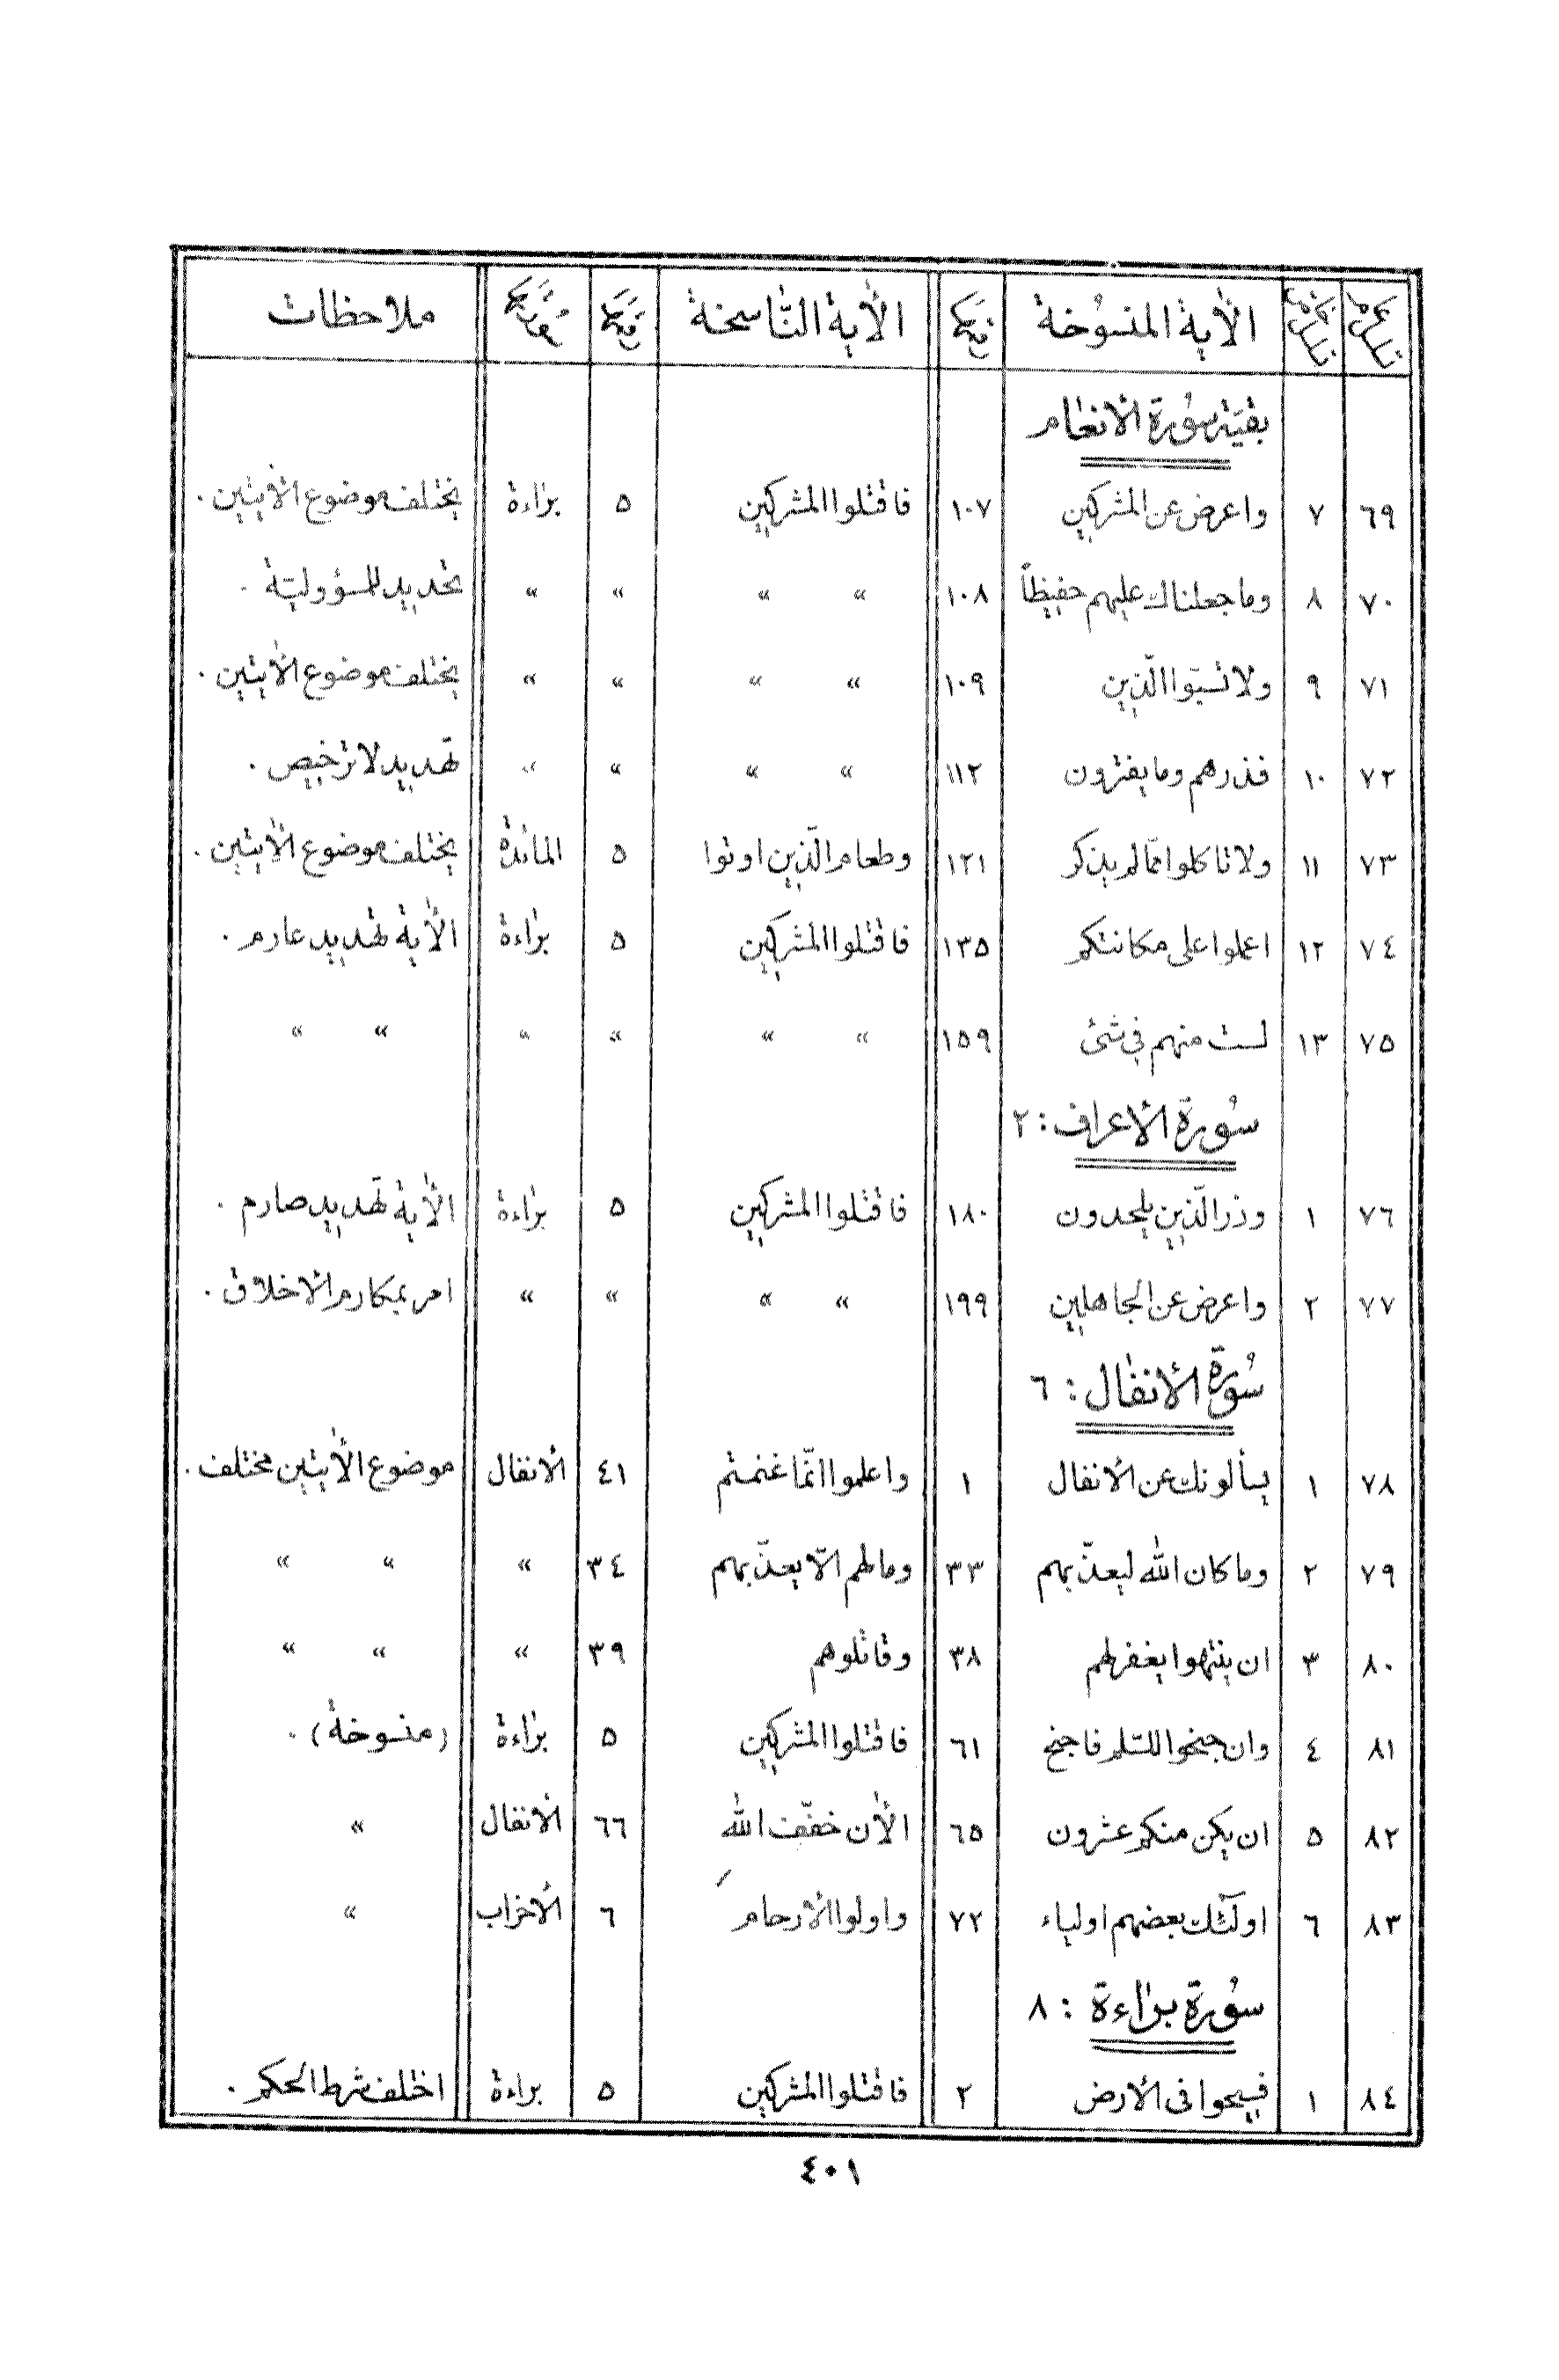 تسلسل عام تسلسل خاص الآية المنسوخة رقمها الآية النّاسخة رقمها سورتها ملاحظات
بقيّة سورة الأنعام
٦٩ ٧ واعرض عن المشركين ١٠٧ فاقتلوا المشركين ٥ براءة يختلف موضوع الآيتين .
٧٠ ٨ وما جعلناك عليهم حفيظاً ١٠٨ » » » » تحديد للمسؤوليّة .
٧١ ٩ ولا تسبّوا الّذين ١٠٩ » » » » يختلف موضوع الآيتين .
٧٢ ١٠ فذرهم وما يفترون ١١٢ » » » » تهديد لا ترخيص .
٧٣ ١١ ولا تاكلوا ممّا لم يذكر ١٢١ وطعام الّذين اوتوا ٥ المائدة يختلف موضوع الآيتين .
٧٤ ١٢ اعملوا على مكانتكم ١٣٥ فاقتلوا المشركين ٥ براءة الآية تهديد عارم .
٧٥ ١٣ لست منهم في شئ ١٥٩ » » » » » »
سورة الأعراف : ٢
٧٦ ١ وذر الّذين يلحدون ١٨٠ فاقتلوا المشركين ٥ براءة الآية تهديد صارم .
٧٧ ٢ واعرض عن الجاهلين ١٩٩ » » » » امر بمكارم الاخلاق .
سورة الأنفال : ٦
٧٨ ١ يسألونك عن الأنفال ١ واعلموا انّما غنمتم ٤١ الأنفال موضوع الآيتين مختلف .
٧٩ ٢ وما كان الله ليعذّبهم ٣٣ وما لهم الّا يعذّبهم ٣٤ » » »
٨٠ ٣ ان ينتهوا يغفر لهم ٣٨ وقاتلوهم ٣٩ » » »
٨١ ٤ وان جنحوا للسّلم فاجنح ٦١ فاقتلوا المشركين ٥ براءة (منسوخة) .
٨٢ ٥ ان يكن منكم عشرون ٦٥ الآن خفّف الله ٦٦ الأنفال »
٨٣ ٦ اولٓئك بعضهم اولياء ٧٢ واولوا الأرحام ٦ الأحزاب »
سورة براءة : ٨
٨٤ ١ فسيحوا في الأرض ٢ فاقتلوا المشركين ٥ براءة اختلف شرط الحكم .
٤٠١